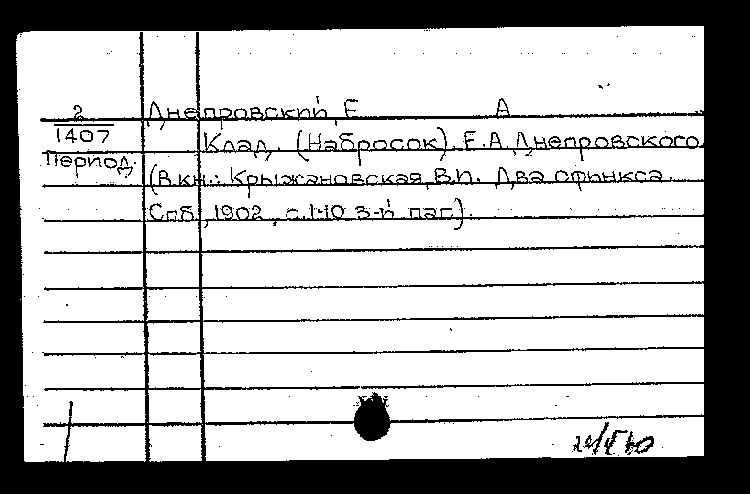 2
1407
Период.
Днепровский, Е А
Клад. (Набросок). Е.А. Днепровского.
(В кн.: Крыжановская, В.И. Два сфинкса.
Спб., 1902, с. 1-10 3-й паг).